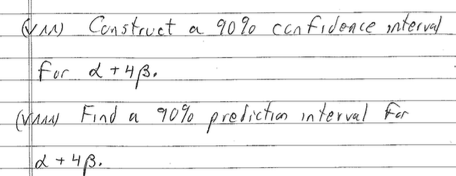 (VII) Construct a 90% confidence interval
for α + 4β.
(VIII) Find a 90% prediction interval for
α + 4β.